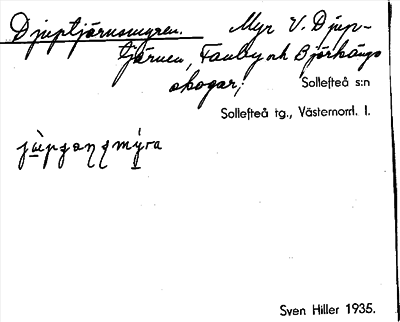 Djuptjärnsmyren. Myr V. Djup-
tjärnen, Fanby och Björkängs
skogar;
Sollefteå s:n
Sollefteå tg., Västernorrl. l.
Sven Hiller 1935.